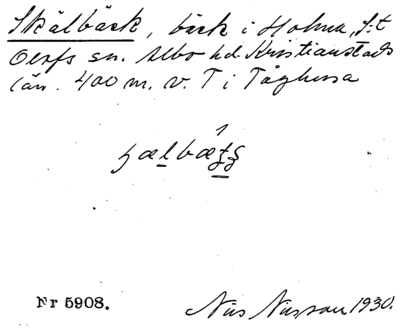 Skälbäck, bäck i Holma, S:t
Olofs sn. Albo hd. Kristianstads
län. 400 m. v. T i Tåghusa
Nr 5908.
Nils Nilsson 1930.